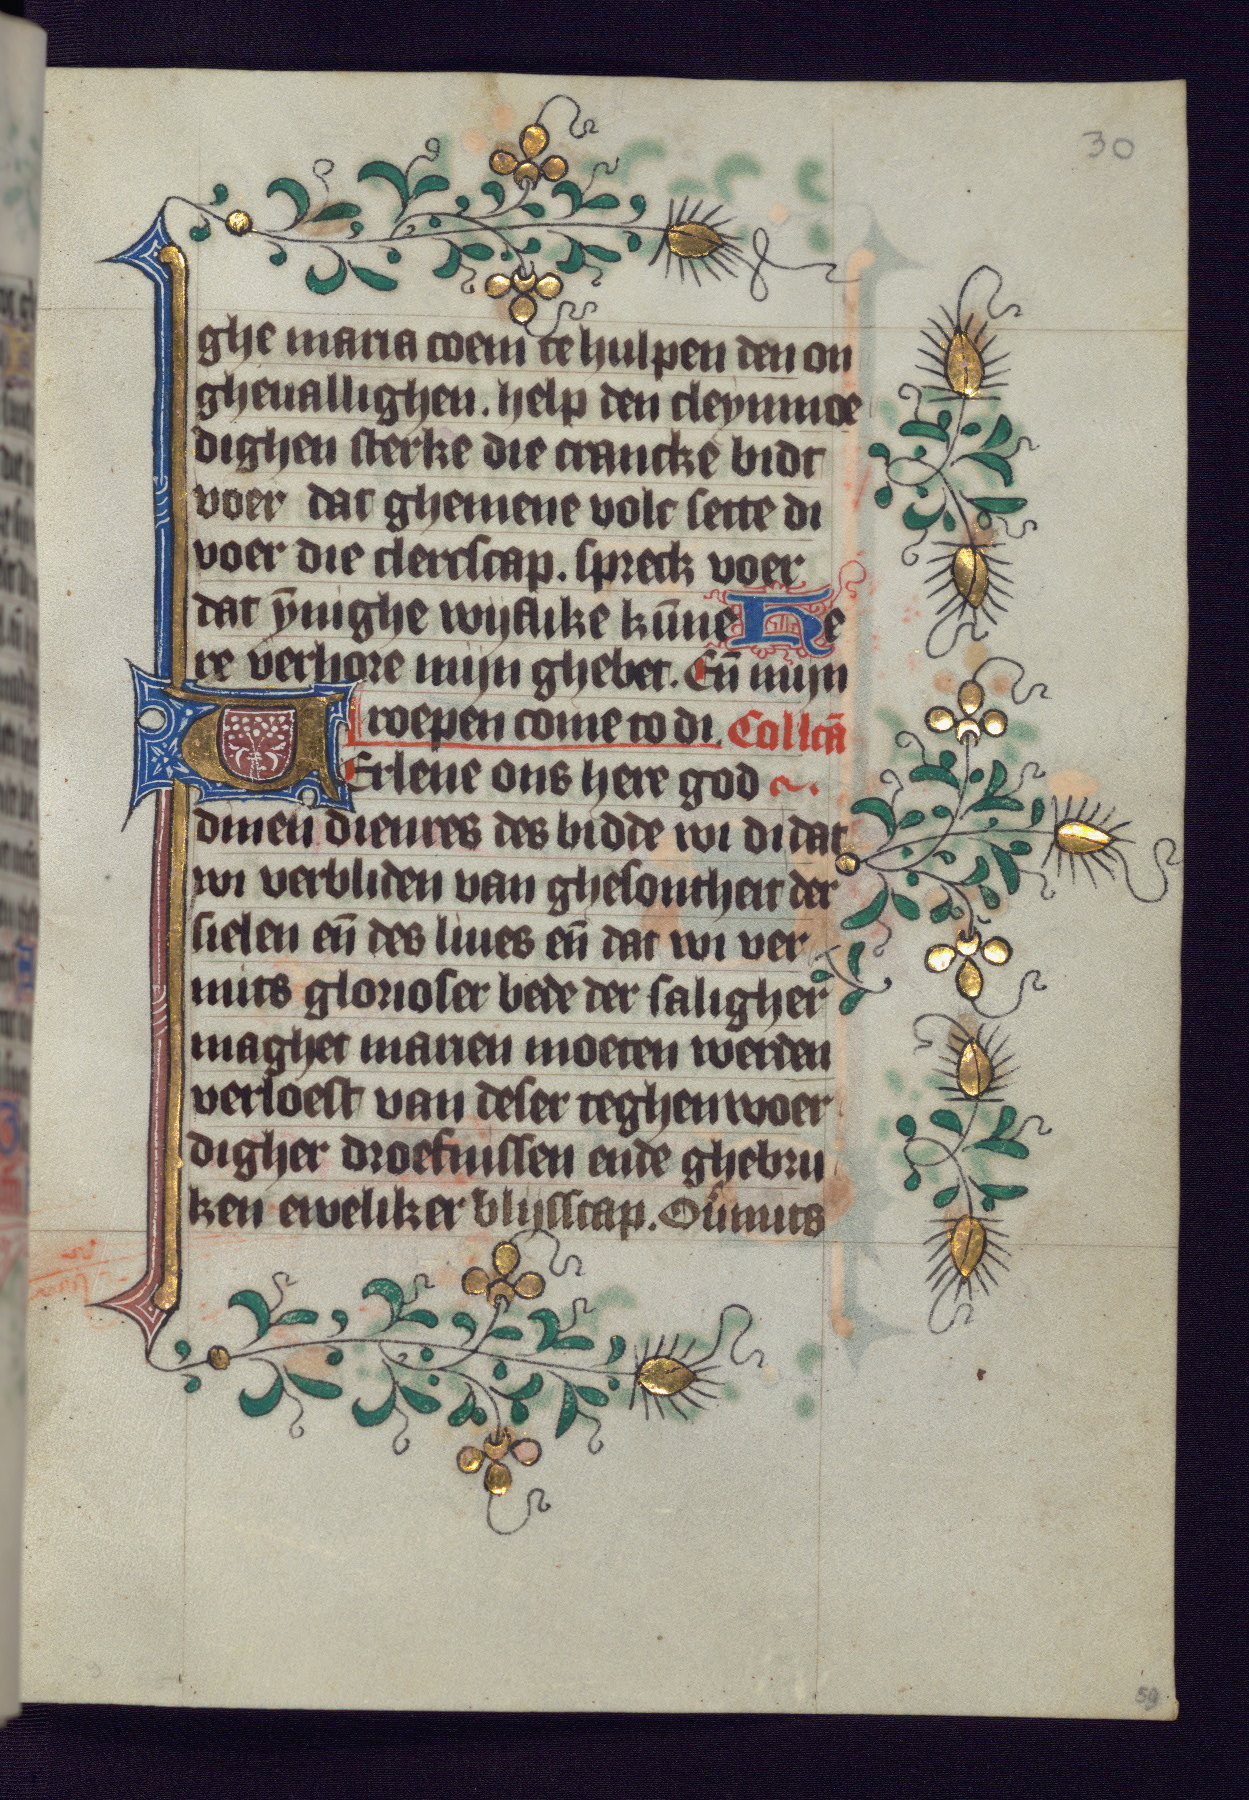 30
ghe maria coem te hulpen den on
gheuallighen. help den cleynmoe
dighen sterke die crancke bidt
voer dat ghemene volc sette di
voer die clercscap. spreck voer
dat ȳnighe wijflike kūne He
re verhore mijn ghebet. Eñ mijn
roepen come to di. Collcā
Erlene ons here god
dinen dienres des bidde wi di dat
wi verbliden van ghesontheit der
sielen eñ des liues eñ dat wi ver
mits glorioser bede der saligher
maghet marien moeten werden
verloest van deser teghenwoer
digher droefnissen ende ghebru
ken eweliker blijsscap. Ouͤmits
59